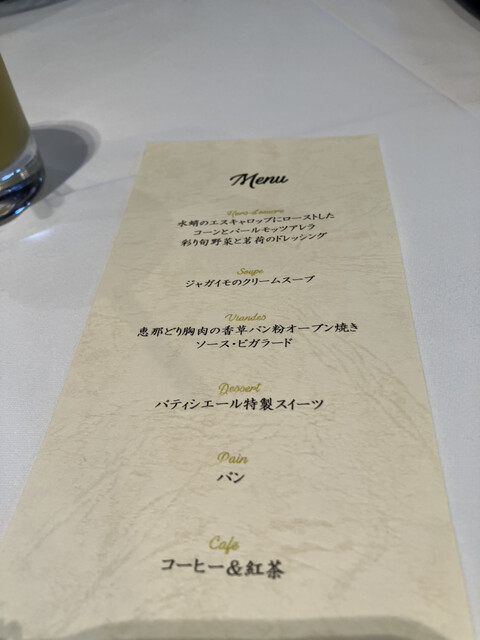 Menu
Hors-d'oeuvre
水蛸のエスキャロップにローストした
コーンとパールモッツアレラ
彩り旬野菜と茗荷のドレッシング
Soupe
ジャガイモのクリームスープ
Viandes
恵那どり胸肉の香草パン粉オーブン焼き
ソース・ビガラード
Dessert
パティシエール特製スイーツ
Pain
パン
Cafe
コーヒー＆紅茶